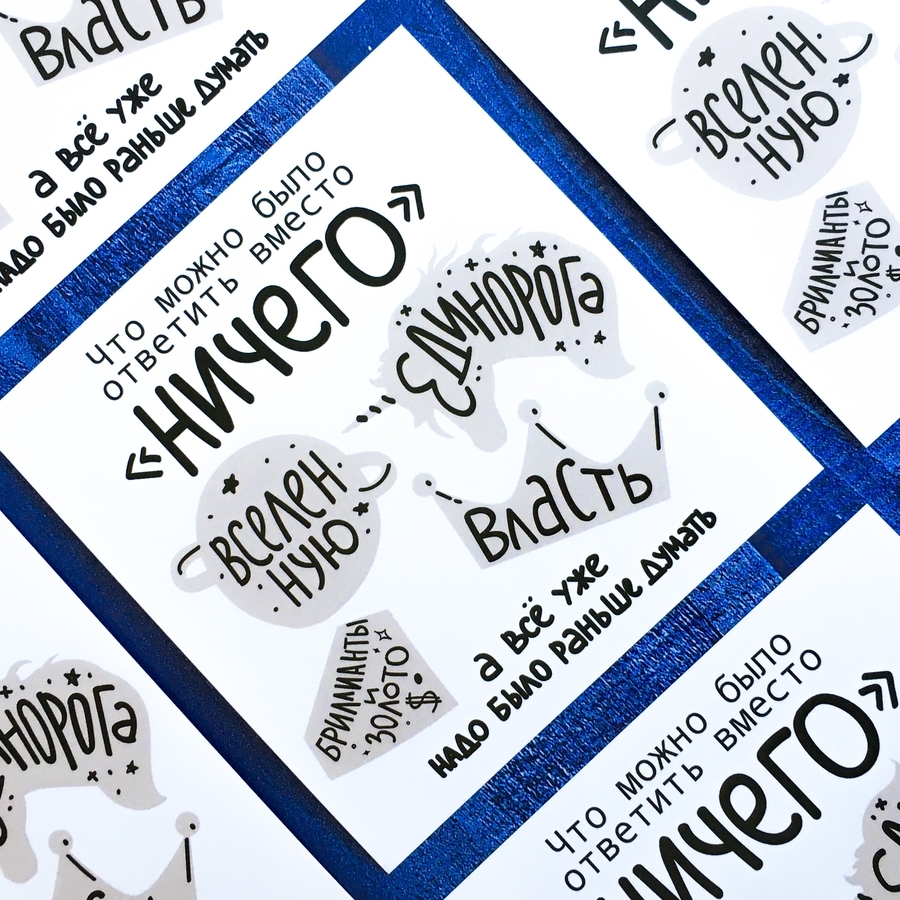 Власть
а всё уже
надо было раньше думать
Что можно было
ответить вместо
«НИЧЕГО»
ЕДИНОРОГа
ВСЕЛЕН
НУЮ
Власть
БРИЛЛИАНТЫ
и
ЗОЛОТО
$
а всё уже
надо было раньше думать
ВСЕЛЕН
НУЮ
БРИЛЛИАНТЫ
и
ЗОЛОТО
$
Что можно было
ответить вместо